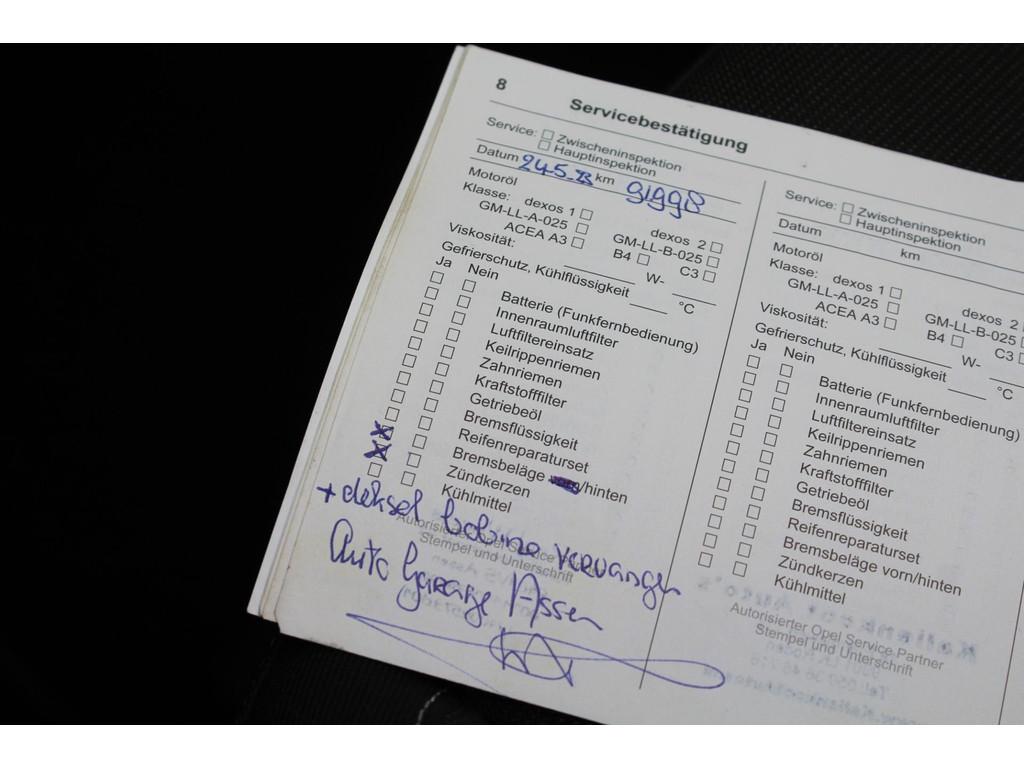 8
Servicebestätigung
Service: Zwischeninspektion
Hauptinspektion
Datum 24.5.23 km 91998
Motoröl
Klasse: dexos 1 dexos 2
GM-LL-A-025 GM-LL-B-025
ACEA A3 B4 C3
Viskosität: W-
Gefrierschutz, Kühlflüssigkeit °C
Ja Nein
Batterie (Funkfernbedienung)
Innenraumluftfilter
Luftfiltereinsatz
Keilrippenriemen
Zahnriemen
Kraftstofffilter
Getriebeöl
Bremsflüssigkeit
Reifenreparaturset
Bremsbeläge /hinten
Zündkerzen
Kühlmittel
+ deksel bobine vervangen
Autorisierter Opel Service
Stempel und Unterschrift
Auto Garage Assen
Service: Zwischeninspektion
Hauptinspektion
Datum km
Motoröl
Klasse: dexos 1 dexos 2
GM-LL-A-025 GM-LL-B-025
ACEA A3 B4 C3
Viskosität: W-
Gefrierschutz, Kühlflüssigkeit °C
Ja Nein
Batterie (Funkfernbedienung)
Innenraumluftfilter
Luftfiltereinsatz
Keilrippenriemen
Zahnriemen
Kraftstofffilter
Getriebeöl
Bremsflüssigkeit
Reifenreparaturset
Bremsbeläge vorn/hinten
Zündkerzen
Kühlmittel
Autorisierter Opel Service Partner
Stempel und Unterschrift